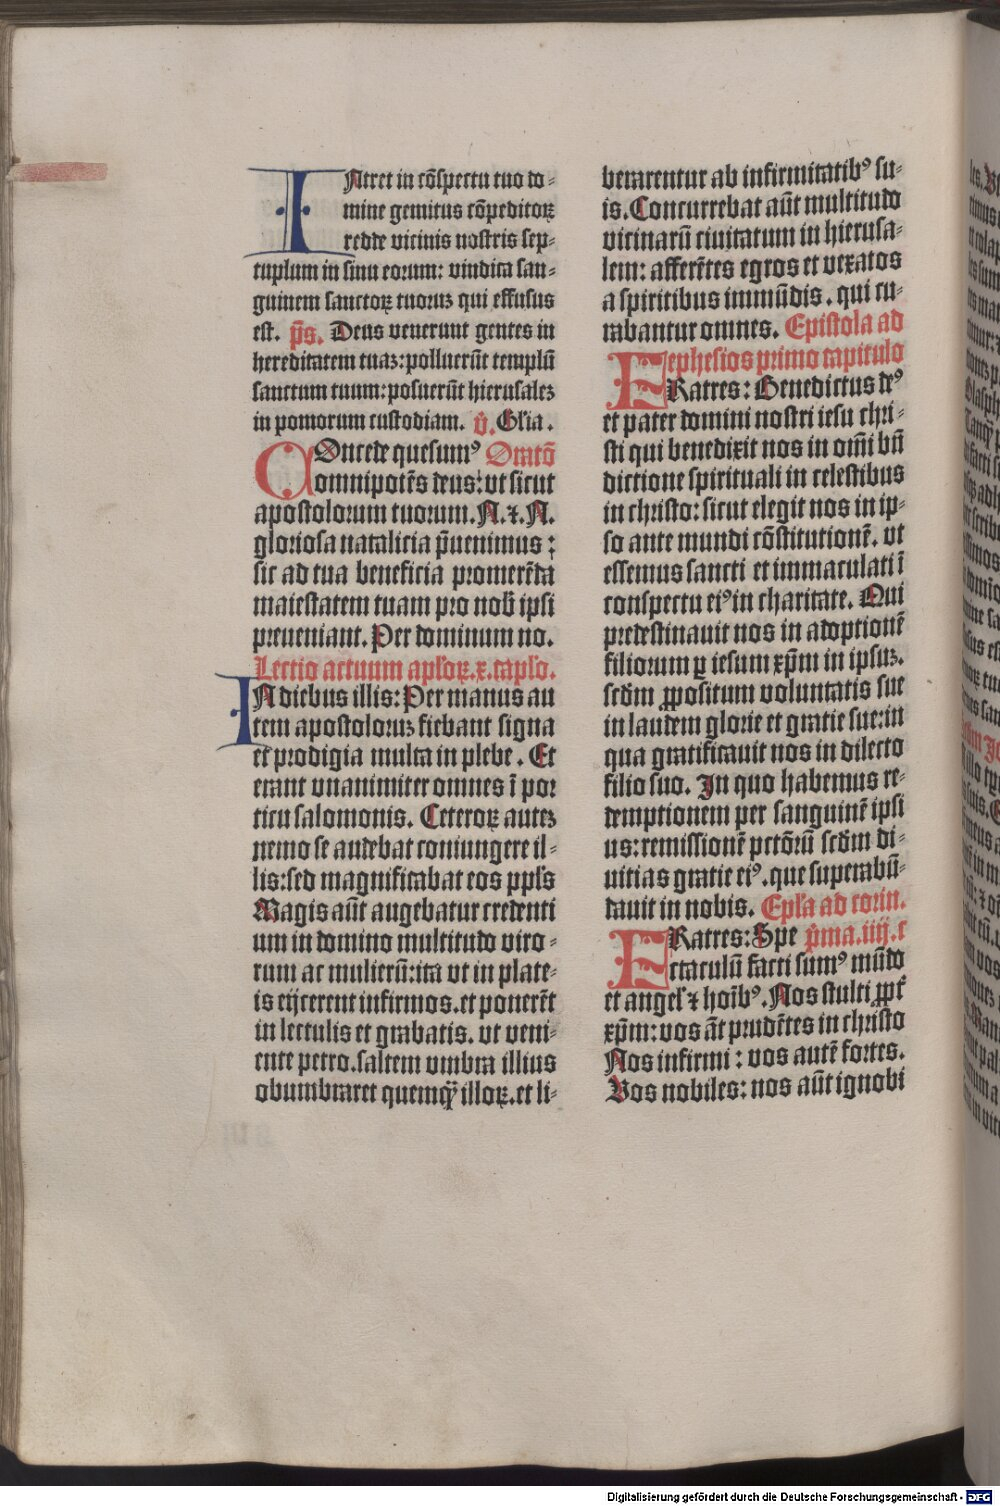 INtret in cōspectu tuo do-
mine gemitus cōpeditoꝝ
redde vicinis nostris sep-
tuplum in sinu eorum: vindica san-
guinem sanctoꝝ tuoruꝫ qui effusus
est. p̄s. Deus venerunt gentes in
hereditatem tuaꝫ: polluerūt templū
sanctum tuum: posuerūt hierusaleꝫ
in pomorum custodiam. v̄. Gl'ia.
COncede quesumꝰ Oratō
omnipotēs deus: vt sicut
apostolorum tuorum. N. ⁊. N.
gloriosa natalicia p̄uenimus:
sic ad tua beneficia promerēda
maiestatem tuam pro nob̄ ipsi
preueniant. Per dominum no.
Lectio actuum apl'oꝝ. x. capl'o.
IN diebus illis: Per manus au
tem apostoloruꝫ fiebant signa
et prodigia multa in plebe. Et
erant vnanimiter omnes ī por
ticu salomonis. Ceteroꝝ auteꝫ
nemo se audebat coniungere il-
lis: sed magnificabat eos ppl's
Magis aūt augebatur credenti
um in domino multitudo viro-
rum ac mulierū: ita vt in plate-
is eijcerent infirmos. et ponerēt
in lectulis et grabatis. vt veni-
ente petro. saltem vmbra illius
obumbraret quemqꝫ illoꝝ. et li-
berarentur ab infirmitatibꝰ su-
is. Concurrebat aūt multitudo
vicinarū ciuitatum in hierusa-
lem: afferētes egros et vexatos
a spiritibus immūdis. qui cu-
rabantur omnes. Epistola ad
ephesios primo capitulo
FRatres: Benedictus deꝰ
et pater domini nostri iesu chri-
sti qui benedixit nos in om̄i bn̄
dictione spirituali in celestibus
in christo: sicut elegit nos in ip-
so ante mundi cōstitutionē. vt
essemus sancti et immaculati ī
conspectu eiꝰ in charitate. Qui
predestinauit nos in adoptionē
filiorum ꝑ iesum xp̄m in ipsuꝫ.
scdm̄ ꝓpositum voluntatis sue
in laudem glorie et gratie sue: in
qua gratificauit nos in dilecto
filio suo. In quo habemus re-
demptionem per sanguinē ipsi
us: remissionē pctōrū scdm̄ di-
uitias gratie eiꝰ. que superabū-
dauit in nobis. Epl'a ad corin.
FRatres: Spe p̄ma. iiij. c
ctaculū facti sumꝰ mūdo
et angel' ⁊ hoībꝰ. Nos stulti ꝓpt̄
xp̄m: vos āt prudētes in christo
Nos infirmi: vos autē fortes.
Vos nobiles: nos aūt ignobi
Digitalisierung gefördert durch die Deutsche Forschungsgemeinschaft - DFG